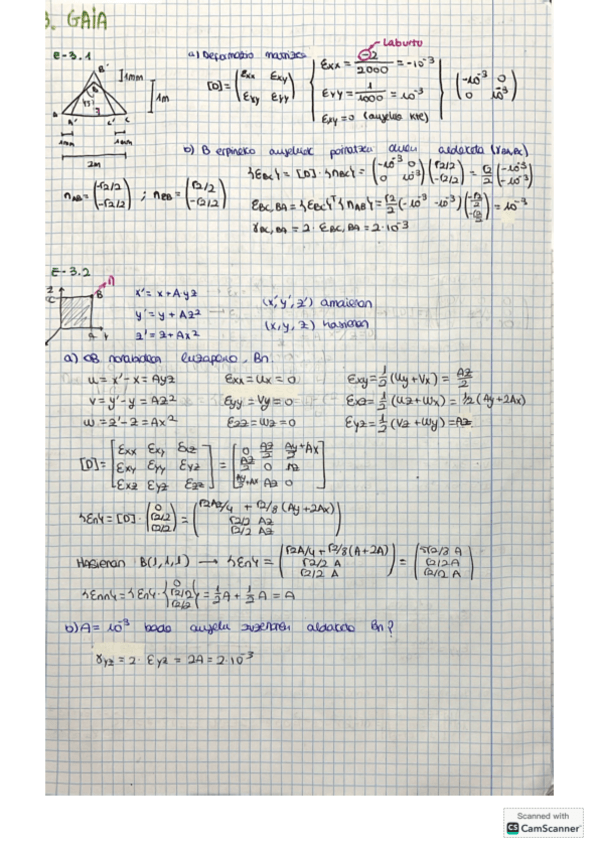 3. GAIA
E-3.1
a) Deformazio matrizea
Laburtu
[D] = (εxx εxy / εxy εyy) { εxx = -2/2000 = -10⁻³ ; εyy = 1/1000 = 10⁻³ ; εxy = 0 (angelua kte) } (-10⁻³ 0 / 0 10⁻³)
B'
B
A A' C' C
1mm
1m
1mm 1mm
2m
b) B erpineko angeluak
aldaketa (γBA,BC)
nAB = (-√2/2 / -√2/2) ; nCB = (√2/2 / -√2/2)
{εBC} = [D] · {nBC} = (-10⁻³ 0 / 0 10⁻³) (√2/2 / -√2/2) = √2/2 (-10⁻³ / -10⁻³)
εBC,BA = {εBC}ᵀ {nAB} = √2/2 (-10⁻³ -10⁻³) (-√2/2 / -√2/2) = 10⁻³
γBC,BA = 2 · εBC,BA = 2·10⁻³
E-3.2
x' = x + Ayz
y' = y + Az²
z' = z + Ax²
(x', y', z') amaieran
(x, y, z) hasieran
a) OB norabidean luzapena, εn
u = x' - x = Ayz εxx = ux = 0 εxy = 1/2 (uy + vx) = Az/2
v = y' - y = Az² εyy = vy = 0 εxz = 1/2 (uz + wx) = 1/2 (Ay + 2Ax)
w = z' - z = Ax² εzz = wz = 0 εyz = 1/2 (vz + wy) = Az
[D] = [εxx εxy εxz / εxy εyy εyz / εxz εyz εzz] = [0 Az/2 Ay/2+Ax / Az/2 0 Az / Ay/2+Ax Az 0]
{εn} = [D] · (0 / √2/2 / √2/2) = (√2Az/4 + √2/8 (Ay+2Ax) / √2/2 Az / √2/2 Az)
Hasieran B(1,1,1) → {εn} = (√2A/4 + √2/8 (A+2A) / √2/2 A / √2/2 A) = (5√2/8 A / √2/2 A / √2/2 A)
{εnn} = {εn} · {0 / √2/2 / √2/2} = 1/2 A + 1/2 A = A
b) A = 10⁻³ bada angelu zuzenaren aldaketa εn?
γyz = 2 · εyz = 2A = 2·10⁻³
Scanned with
CS CamScanner